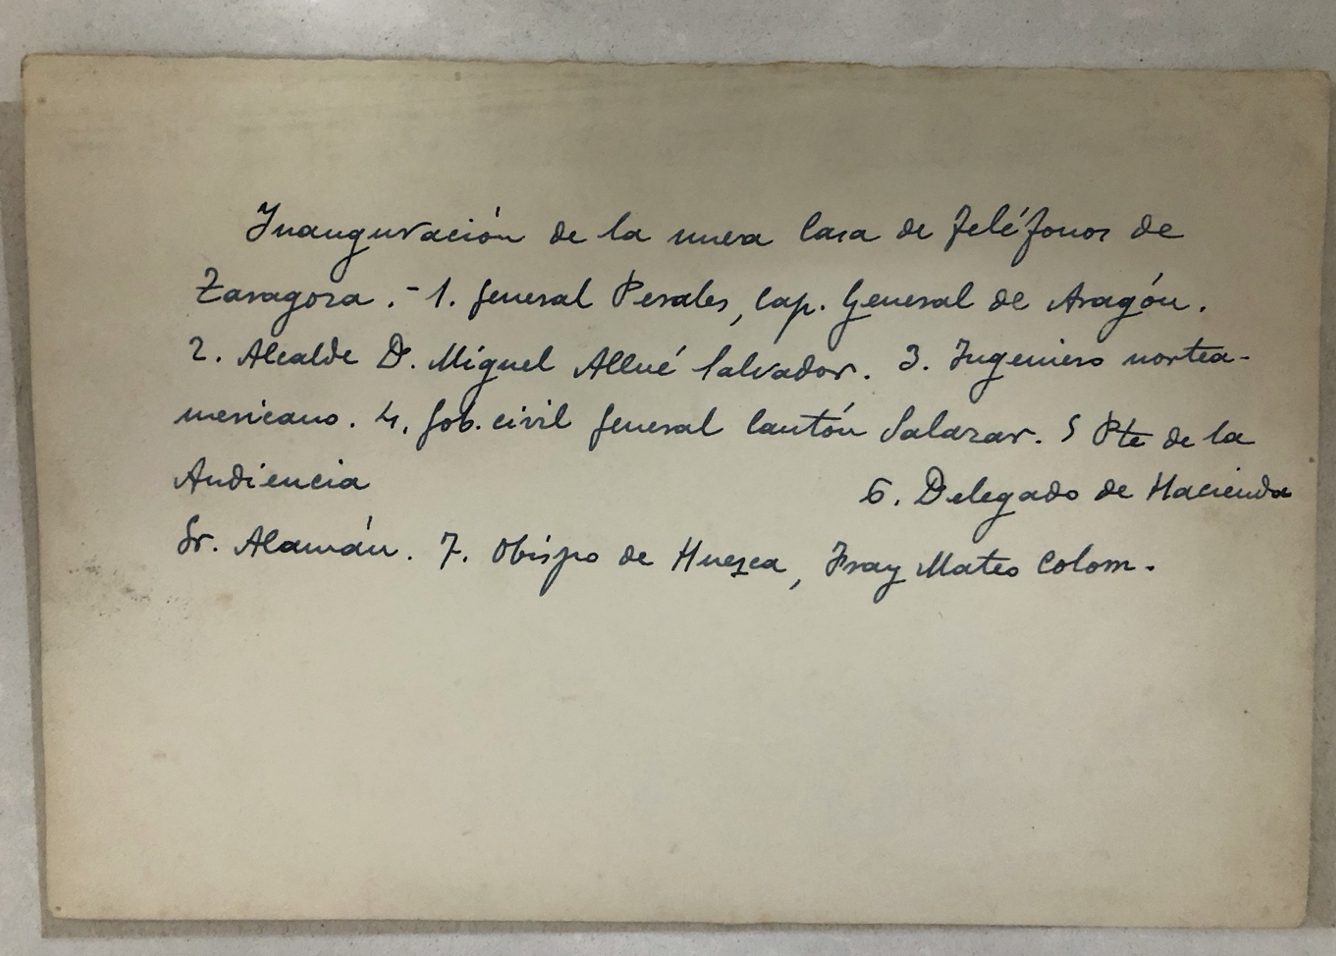 Inauguración de la nueva Casa de Teléfonos de
Zaragoza.- 1. General Perales, Cap. General de Aragón.
2. Alcalde D. Miguel Allué Salvador. 3. Ingeniero nortea-
mericano. 4. Gob. civil General Cantón Salazar. 5 Pte de la
Audiencia 6. Delegado de Hacienda
Sr. Alamán. 7. Obispo de Huesca, Fray Mateo Colom.